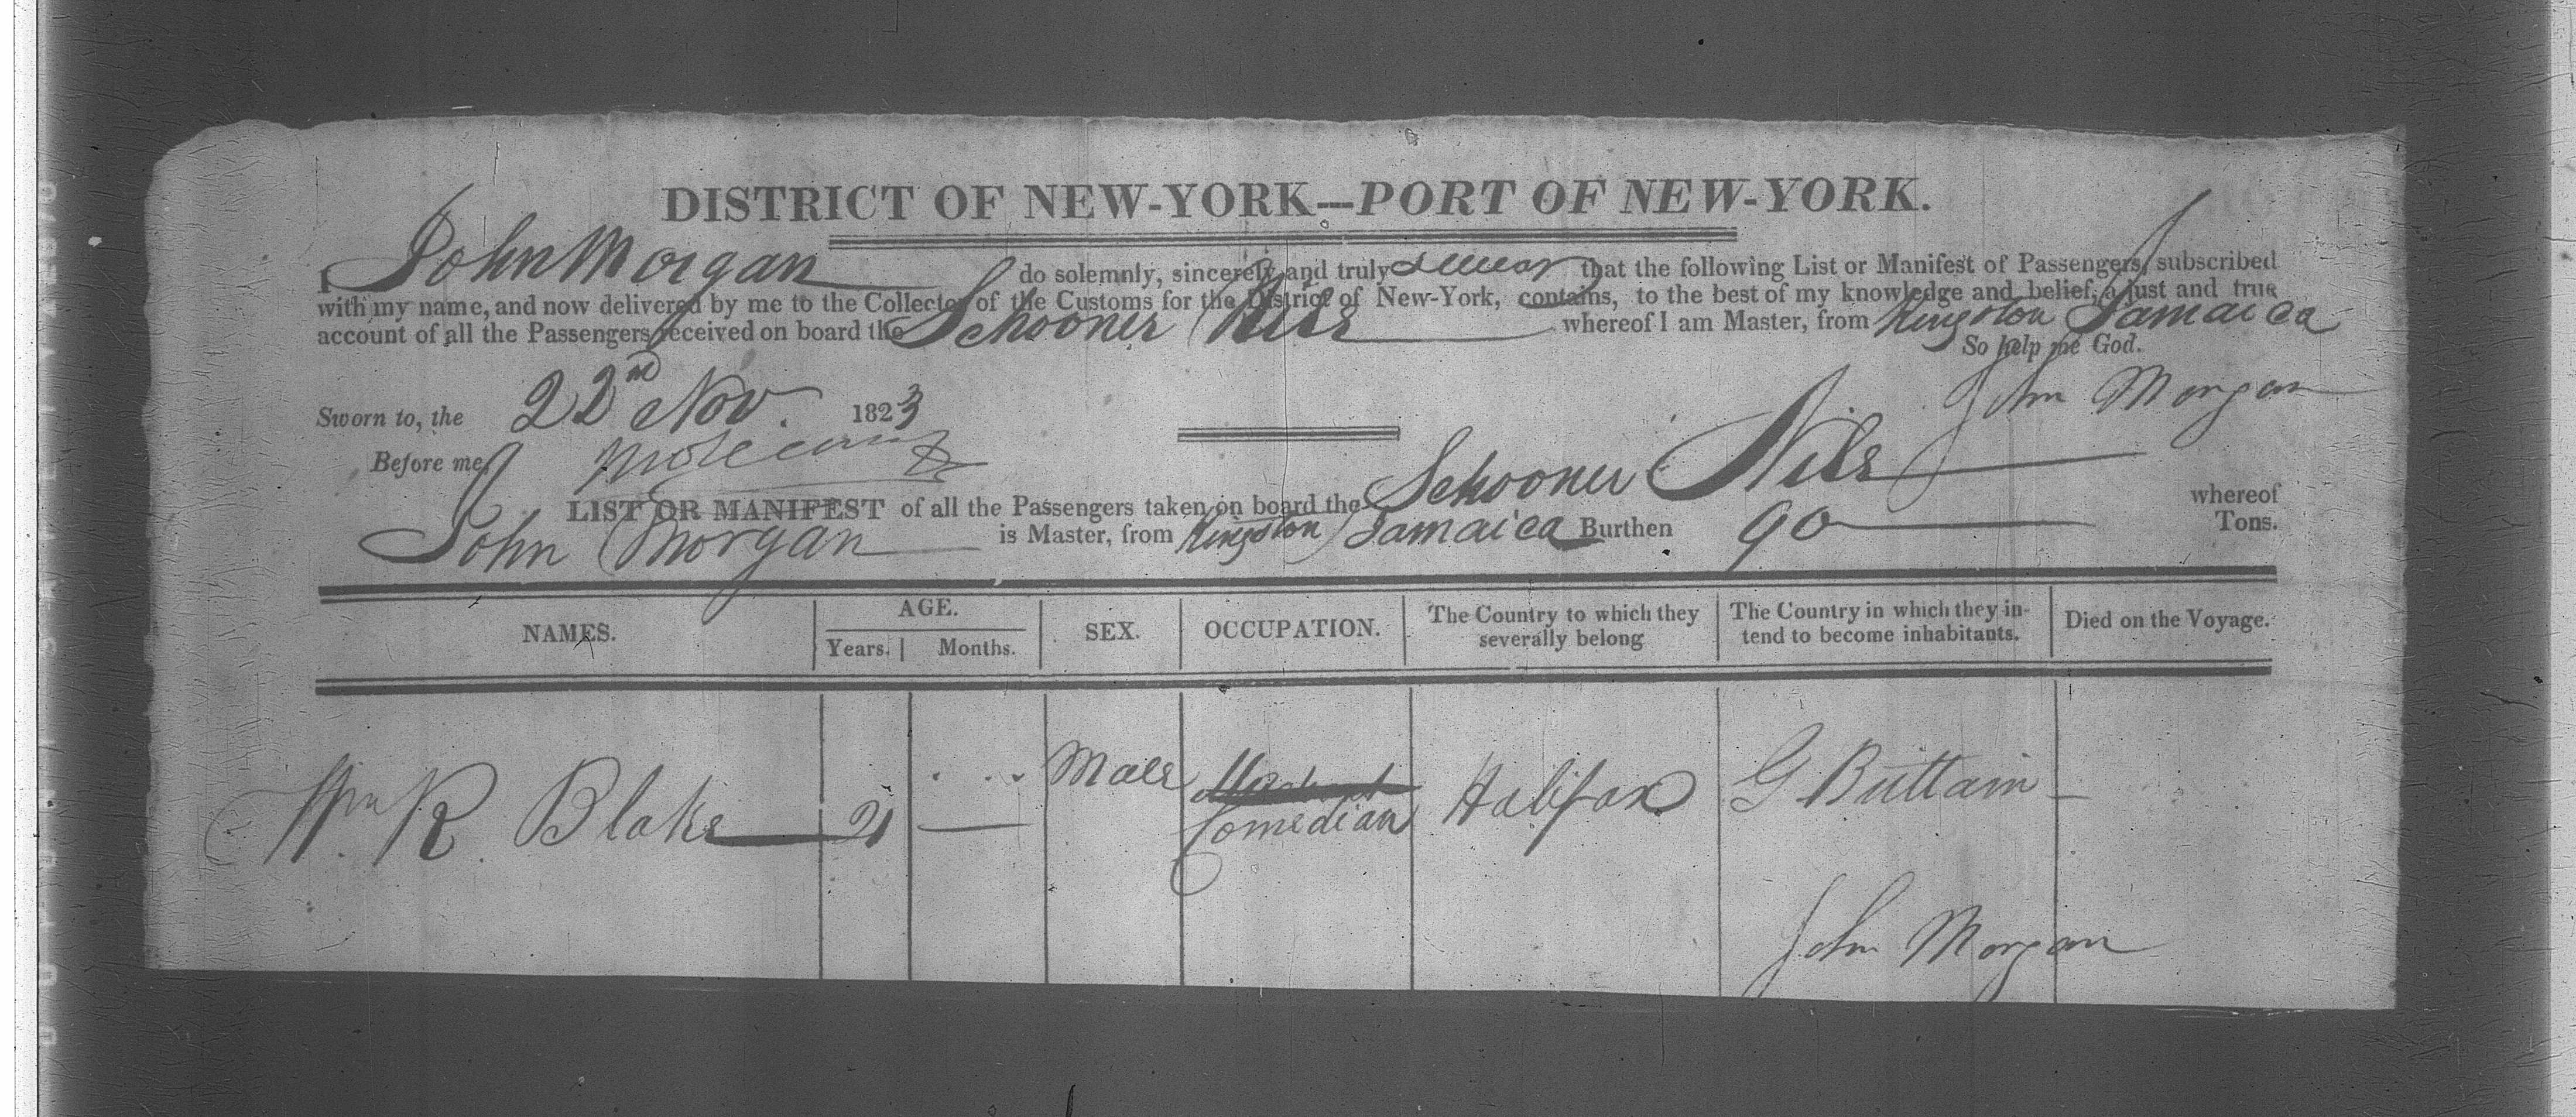 DISTRICT OF NEW-YORK—PORT OF NEW-YORK.
I John Morgan do solemnly, sincerely and truly swear that the following List or Manifest of Passengers, subscribed
with my name, and now delivered by me to the Collector of the Customs for the District of New-York, contains, to the best of my knowledge and belief, a just and true
account of all the Passengers received on board the Schooner Nile whereof I am Master, from Kingston Jamaica
So help me God.
John Morgan
Sworn to, the 22nd Nov. 1823
Before me,
LIST OR MANIFEST of all the Passengers taken on board the Schooner Nile whereof
John Morgan is Master, from Kingston Jamaica Burthen 90 Tons.
NAMES. AGE. Years. Months. SEX. OCCUPATION. The Country to which they severally belong The Country in which they intend to become inhabitants. Died on the Voyage.
Wm. R. Blake 21 Male Comedian Halifax G Brittain
John Morgan